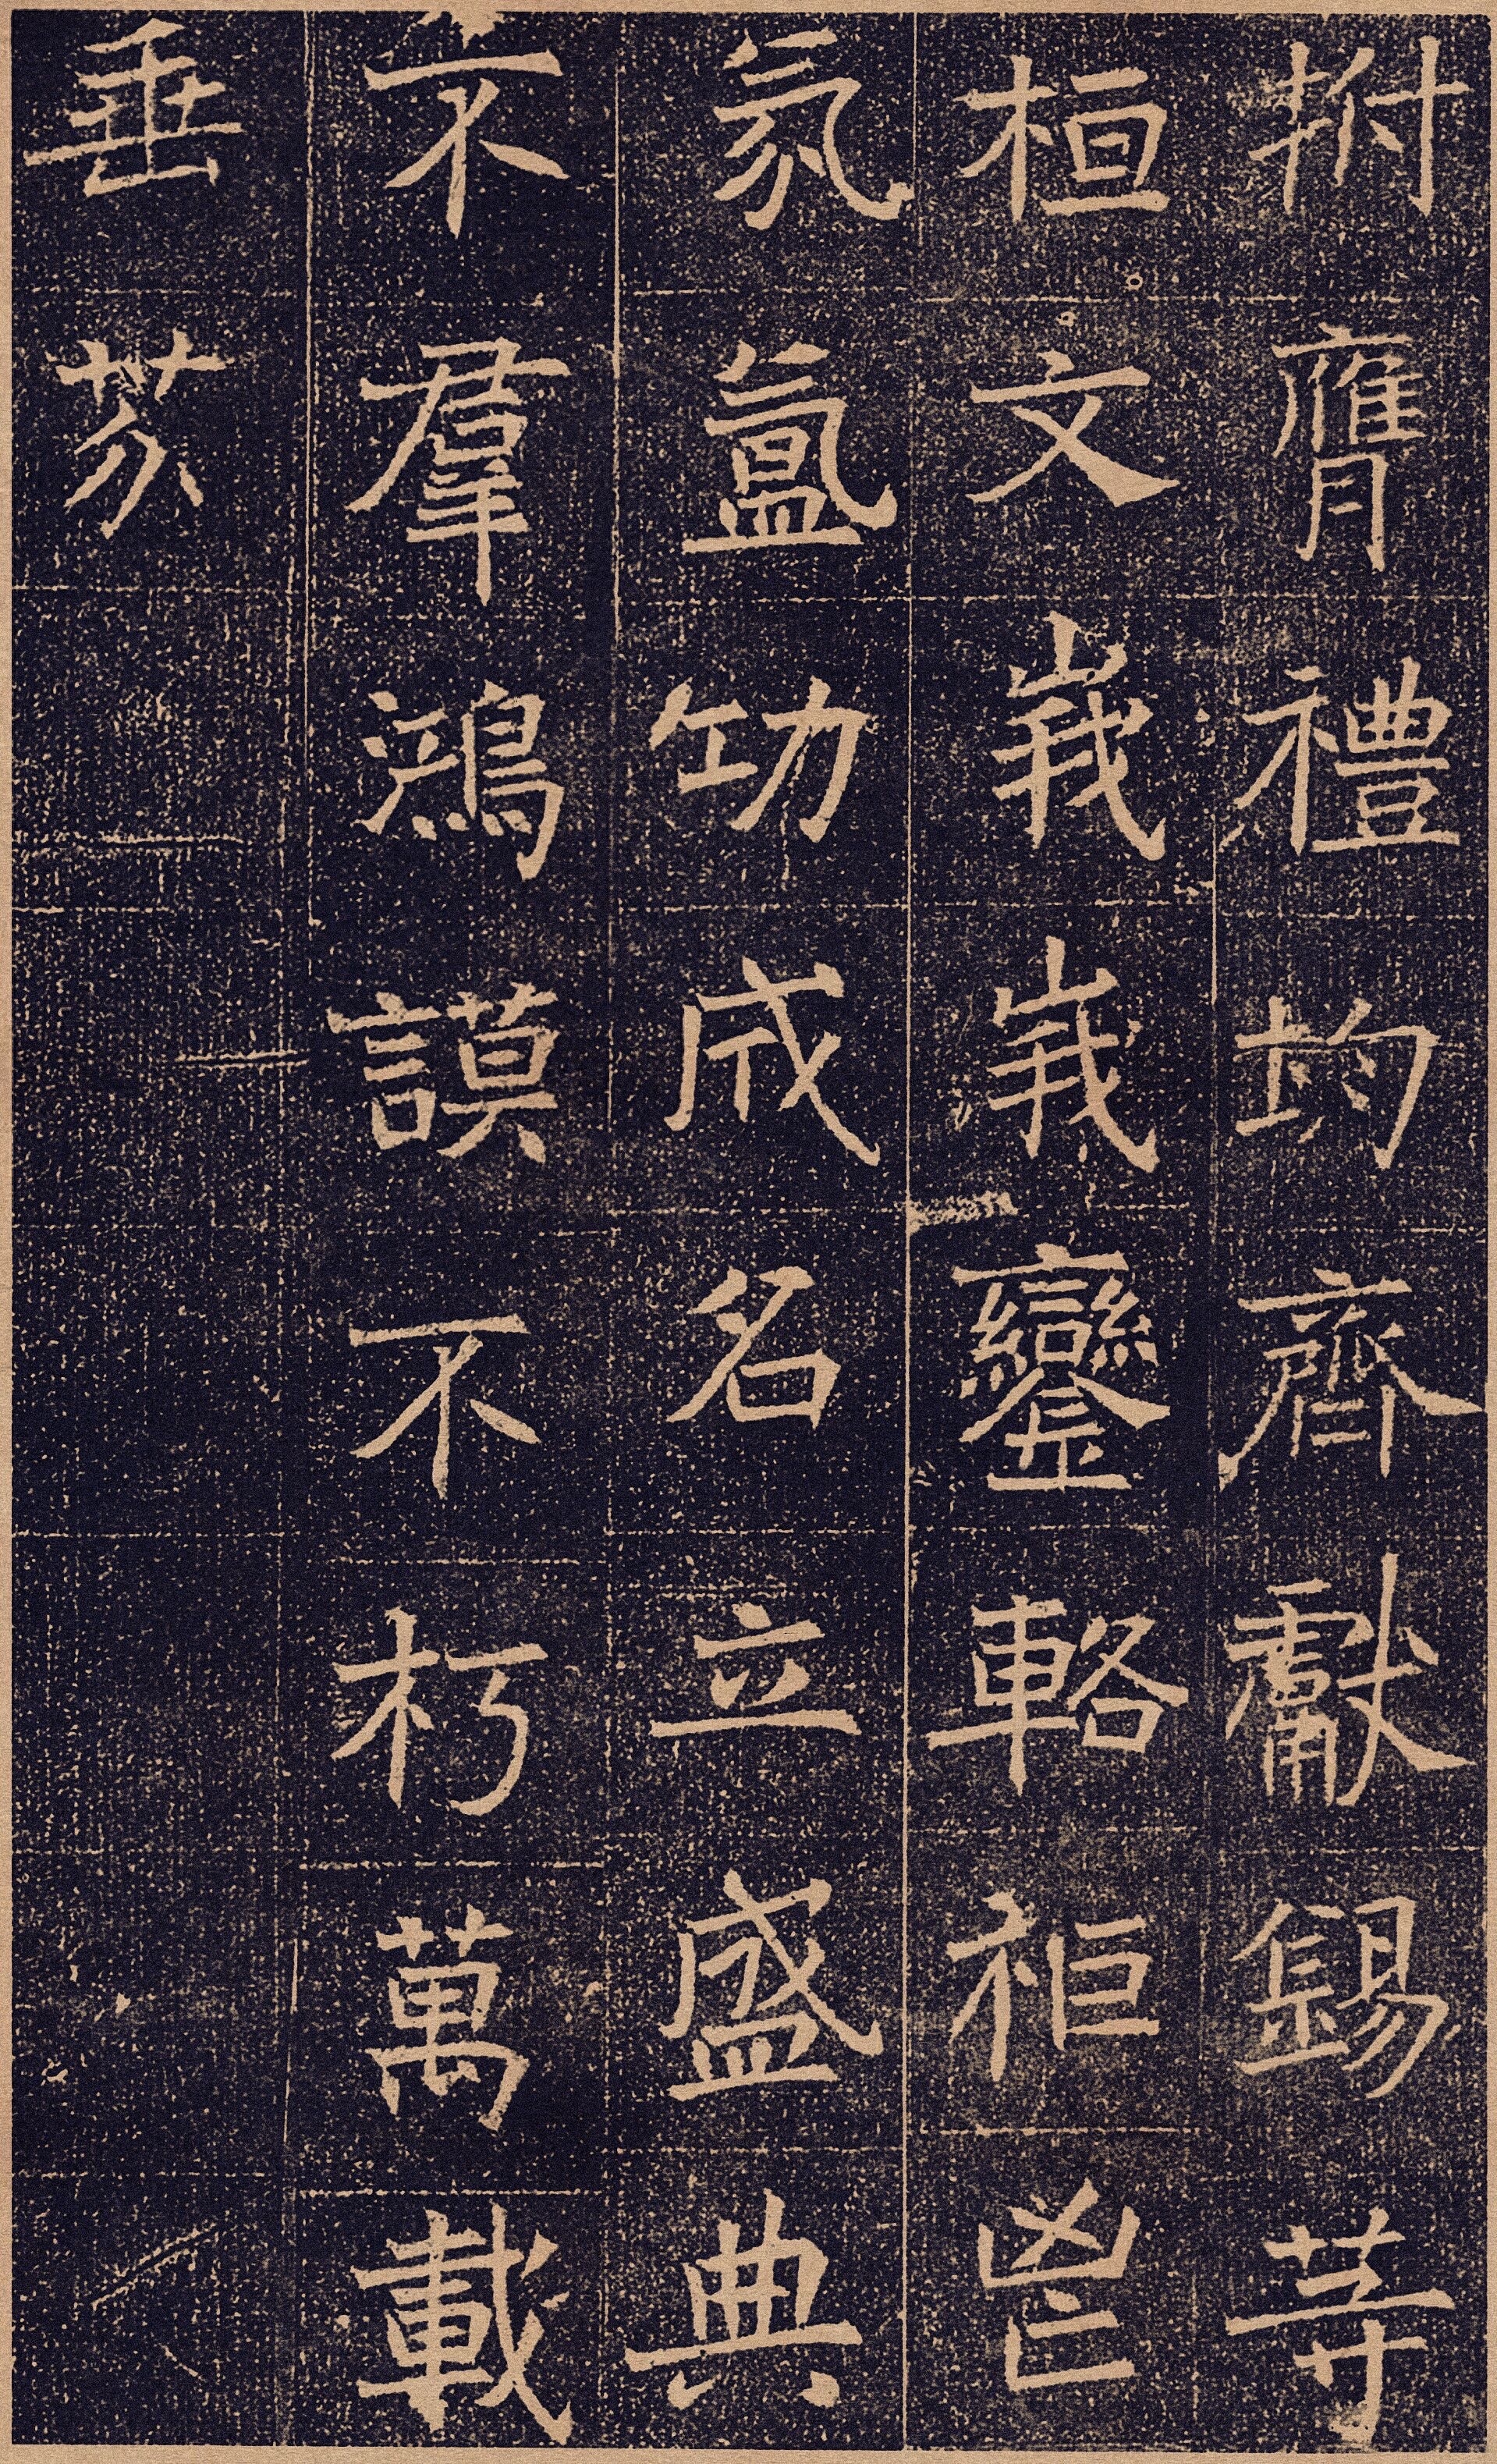 拊膺禮均齊獻錫䓁
桓文峩峩鑾輅秬鬯
氛氳功成名立盛典
不羣鴻謨不朽萬載
垂芬